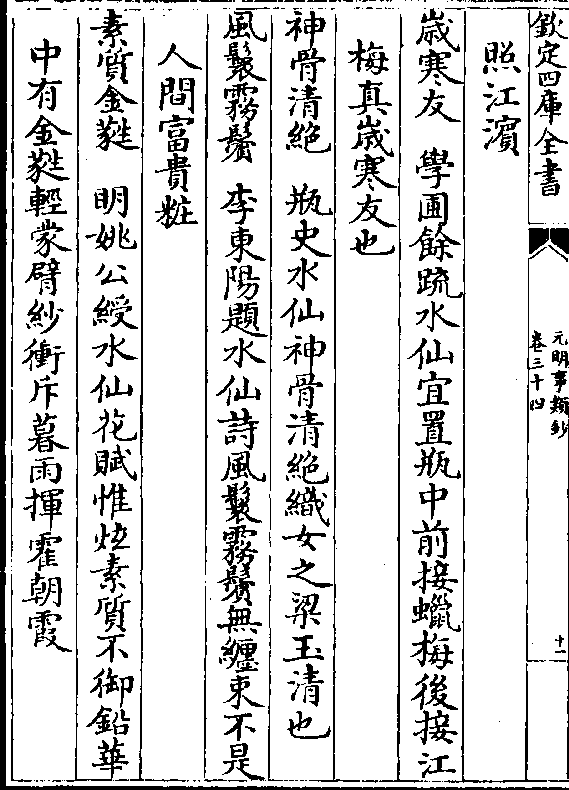 欽定四庫全書
元明事類鈔
卷三十四
十一
照江濱
歲寒友　學圃餘疏水仙宜置瓶中前接蠟梅後接江
梅真歲寒友也
神骨清絶　瓶史水仙神骨清絶織女之梁玉清也
風鬟霧鬢　李東陽題水仙詩風鬟霧鬢無纏束不是
人間富貴粧
素質金蕤　明姚公綬水仙花賦惟炫素質不御鉛華
中有金蕤輕蒙臂紗衝斥暮雨揮霍朝霞